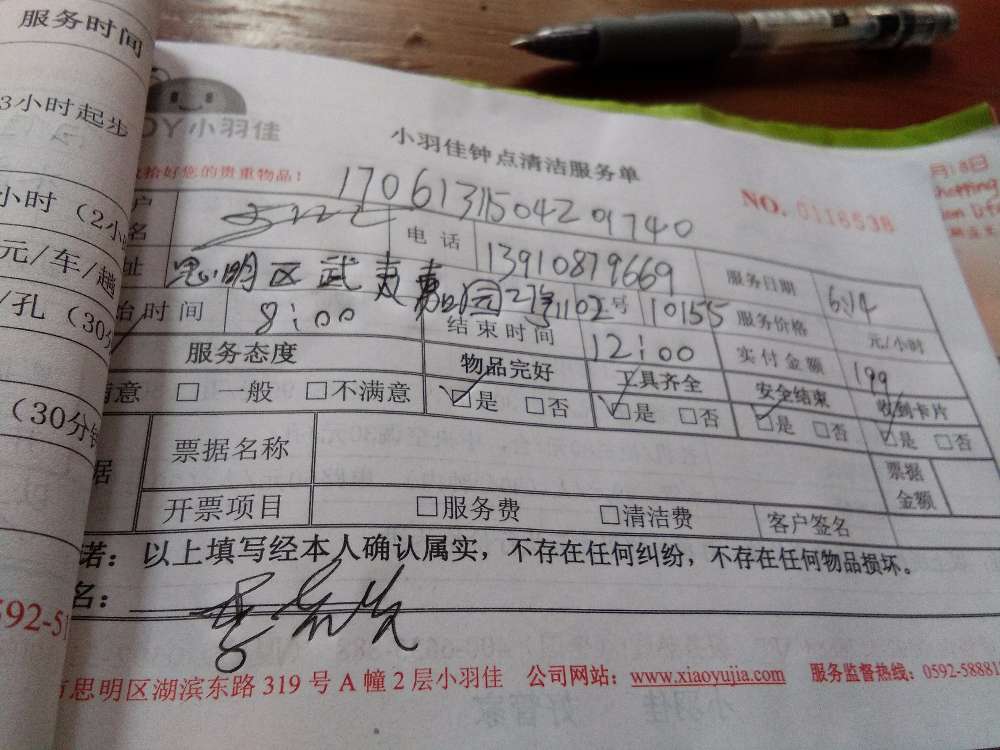 服务时间
3小时起步
小时（2小
元/车/趟
/孔（30分
（30分钟
592-5
小羽佳
小羽佳钟点清洁服务单
恰好您的贵重物品！
NO. 0116538
1706131504209740
名
电话 13910879669
服务日期 6.14
址 思明区武 园2号1102号 10155
服务价格 元/小时
始时间 8:00
结束时间 12:00
实付金额 199
服务态度 物品完好 工具齐全 安全结束 收到卡片
满意 □一般 □不满意 ☑是 □否 ☑是 □否 ☑是 □否 ☑是 □否
据 票据名称 票据金额
开票项目 □服务费 □清洁费 客户签名
诺：以上填写经本人确认属实，不存在任何纠纷，不存在任何物品损坏。
名：
市思明区湖滨东路319号A幢2层小羽佳 公司网站：www.xiaoyujia.com 服务监督热线：0592-58881